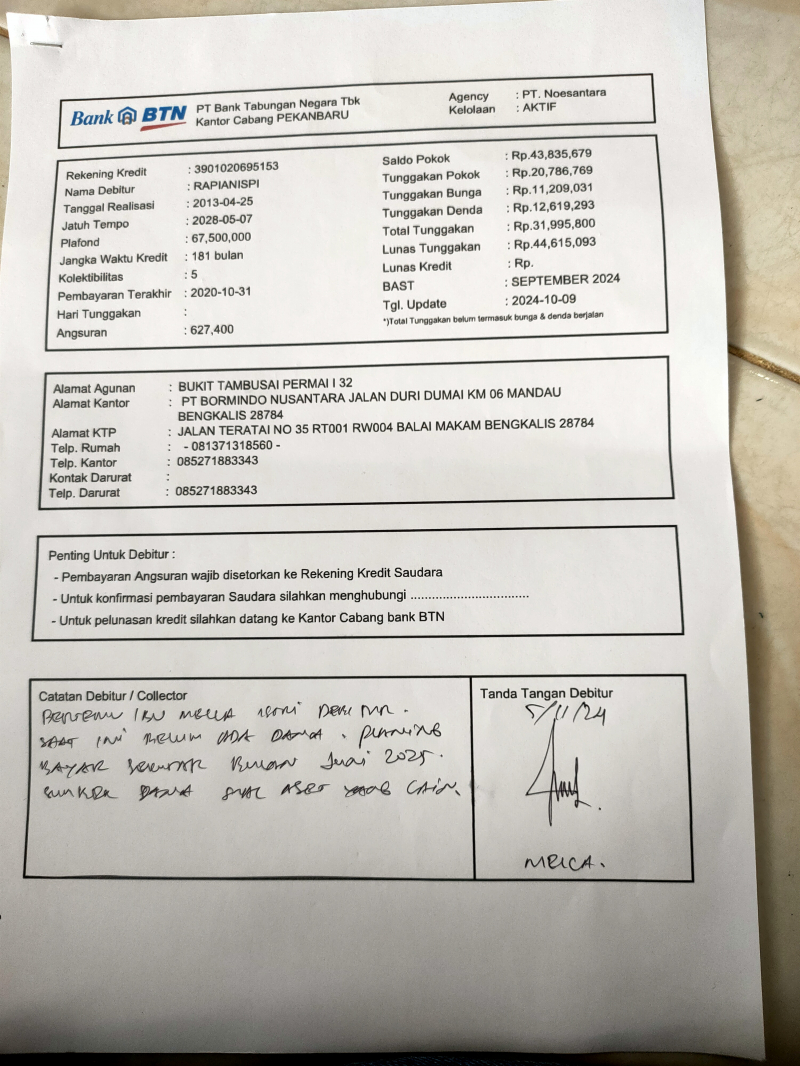 Bank BTN
PT Bank Tabungan Negara Tbk
Kantor Cabang PEKANBARU
Agency : PT. Noesantara
Kelolaan : AKTIF
Rekening Kredit : 3901020695153
Nama Debitur : RAPIANISPI
Tanggal Realisasi : 2013-04-25
Jatuh Tempo : 2028-05-07
Plafond : 67,500,000
Jangka Waktu Kredit : 181 bulan
Kolektibilitas : 5
Pembayaran Terakhir : 2020-10-31
Hari Tunggakan :
Angsuran : 627,400
Saldo Pokok : Rp.43,835,679
Tunggakan Pokok : Rp.20,786,769
Tunggakan Bunga : Rp.11,209,031
Tunggakan Denda : Rp.12,619,293
Total Tunggakan : Rp.31,995,800
Lunas Tunggakan : Rp.44,615,093
Lunas Kredit : Rp.
BAST : SEPTEMBER 2024
Tgl. Update : 2024-10-09
*)Total Tunggakan belum termasuk bunga & denda berjalan
Alamat Agunan : BUKIT TAMBUSAI PERMAI I 32
Alamat Kantor : PT BORMINDO NUSANTARA JALAN DURI DUMAI KM 06 MANDAU
BENGKALIS 28784
Alamat KTP : JALAN TERATAI NO 35 RT001 RW004 BALAI MAKAM BENGKALIS 28784
Telp. Rumah : - 081371318560 -
Telp. Kantor : 085271883343
Kontak Darurat :
Telp. Darurat : 085271883343
Penting Untuk Debitur :
- Pembayaran Angsuran wajib disetorkan ke Rekening Kredit Saudara
- Untuk konfirmasi pembayaran Saudara silahkan menghubungi .................................
- Untuk pelunasan kredit silahkan datang ke Kantor Cabang bank BTN
Catatan Debitur / Collector
BERTEMU IBU ISTRI DARI
SAAT INI BELUM ADA DANA. PLANNING
BAYAR SEKITAR BULAN 2025.
SUMBER DANA ASET YANG LAIN.
Tanda Tangan Debitur
5/11/24